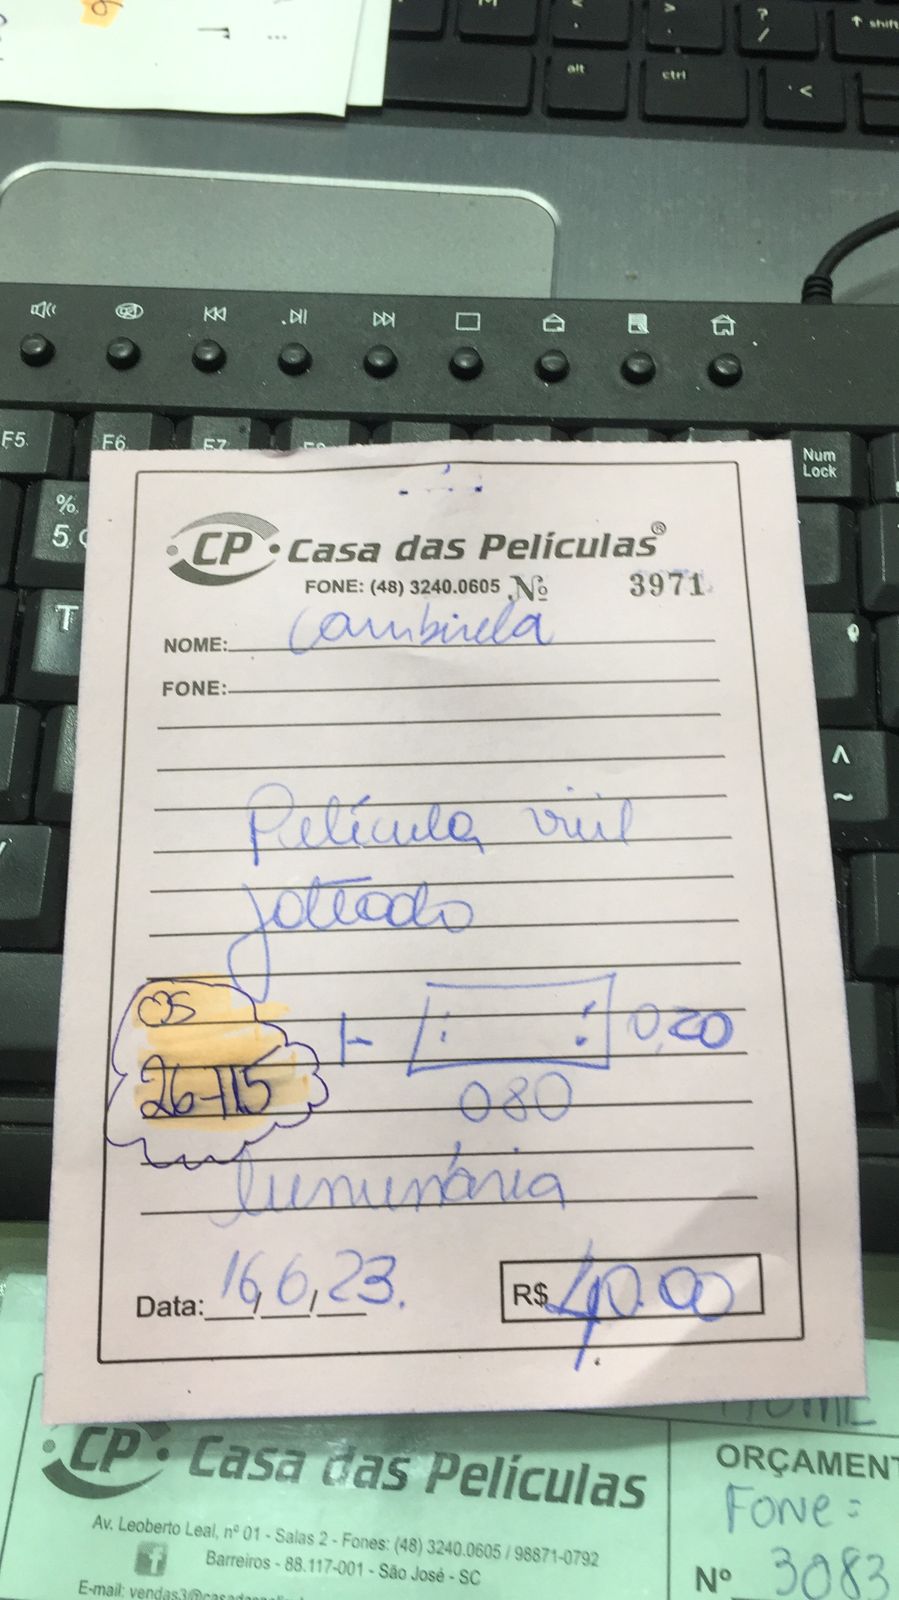 alt
ctrl
shift
F5
F6
F7
Num
Lock
%
5
T
CP Casa das Películas®
FONE: (48) 3240.0605 Nº 3971
NOME: Cambirela
FONE:
Película vinil
jateado
OS
26715
1- 0,20
080
luminária
Data: 16/6/23.
R$ 40.00
CP Casa das Películas
Av. Leoberto Leal, nº 01 - Salas 2 - Fones: (48) 3240.0605 / 98871-0792
Barreiros - 88.117-001 - São José - SC
E-mail: vendas3@casadaspelic
ORÇAMENT
Fone=
Nº 3083